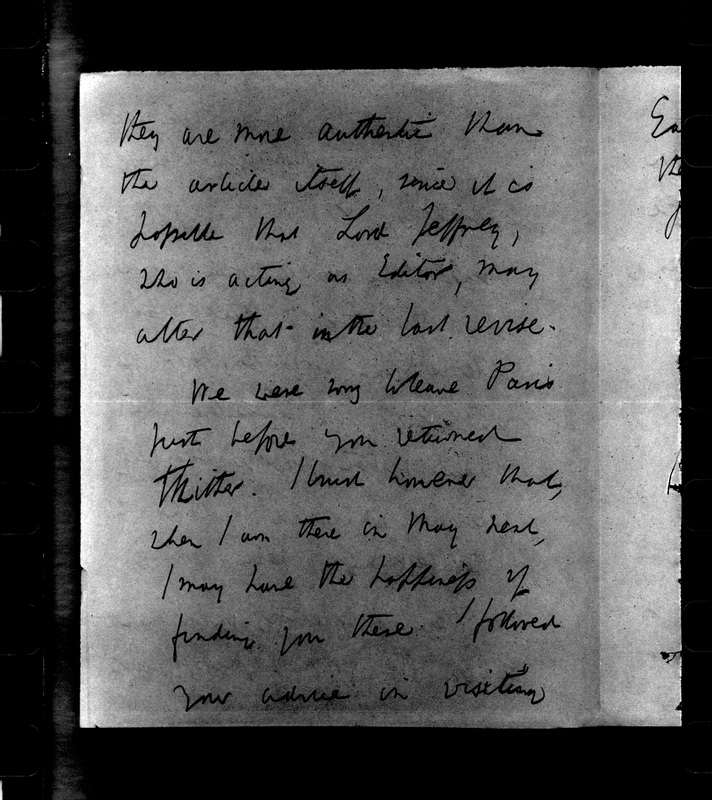 they are more authentic than
the article itself, since it is
possible that Lord Jeffrey,
who is acting as Editor, may
alter that in the last revise.
We were sorry to leave Paris
just before you returned
thither. I trust however that,
when I am there in May next,
I may have the happiness of
finding you there. I followed
your advice in visiting
Ea
the